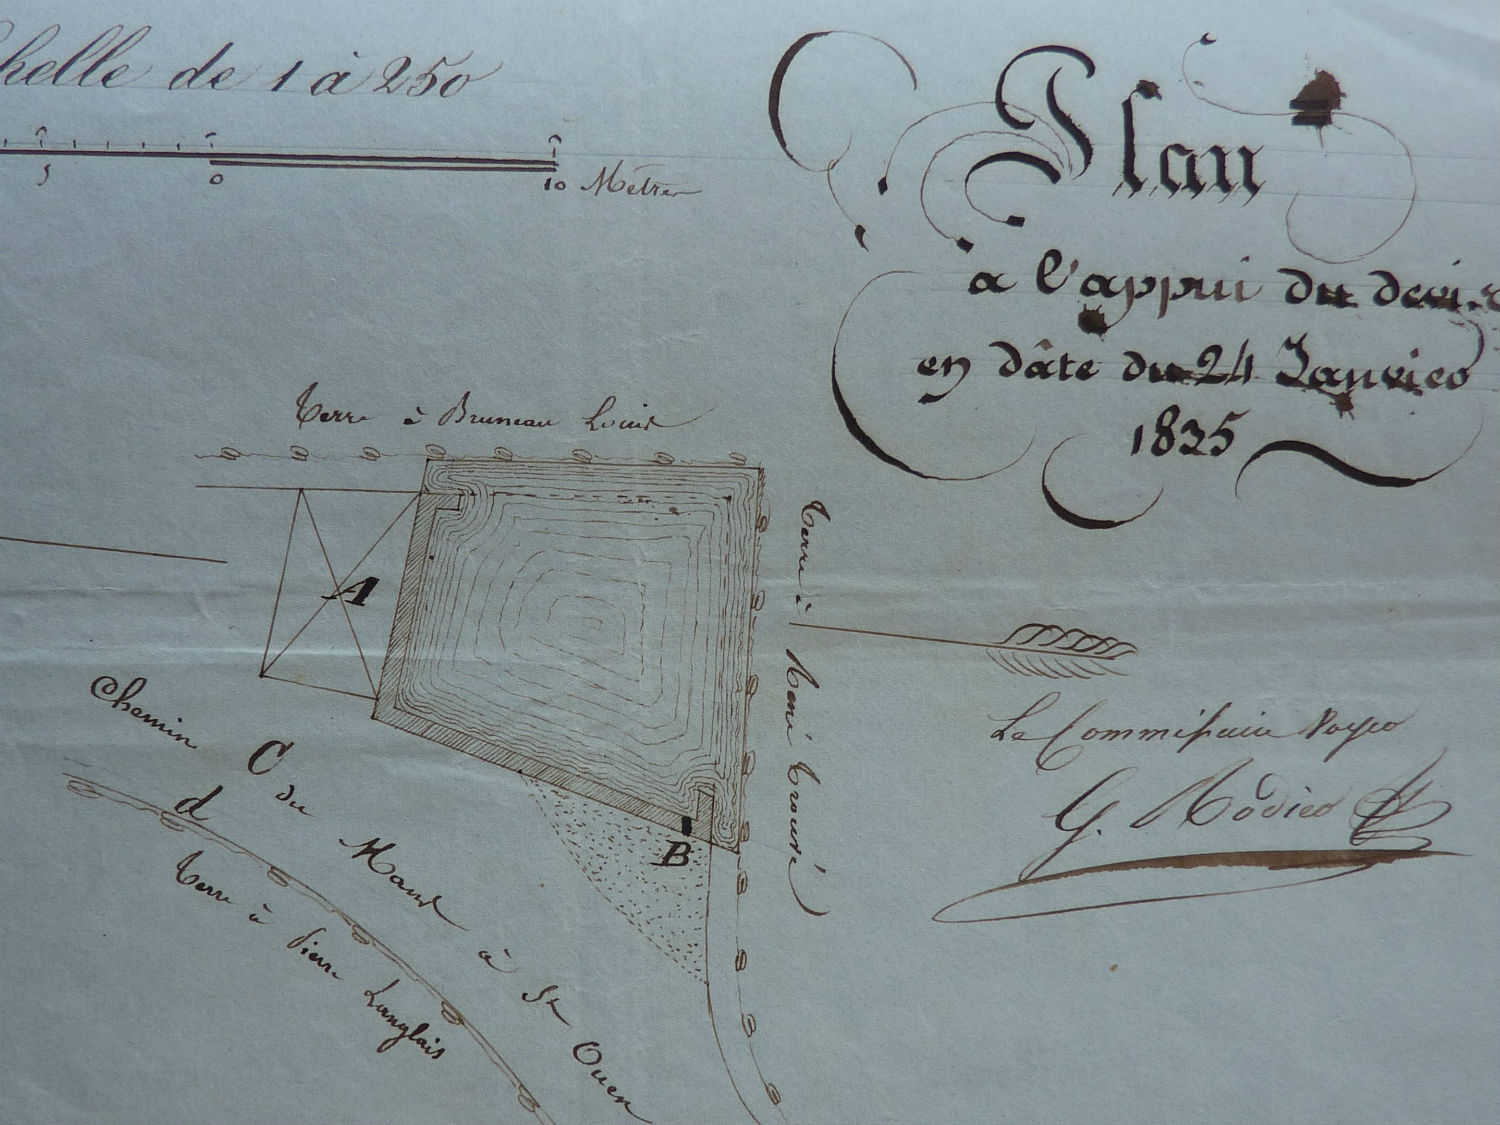 chelle de 1 à 250
5 0 10 Mètres
Plan
à l'appui du devis
en dâte du 24 Janvier
1835
Terre à Bruneau Louis
Terre à René Trouvé
A
B
C
d
Chemin du Mans à St Ouen
Terre à Pierre Langlais
Le Commissaire Voyer
G. Rodier